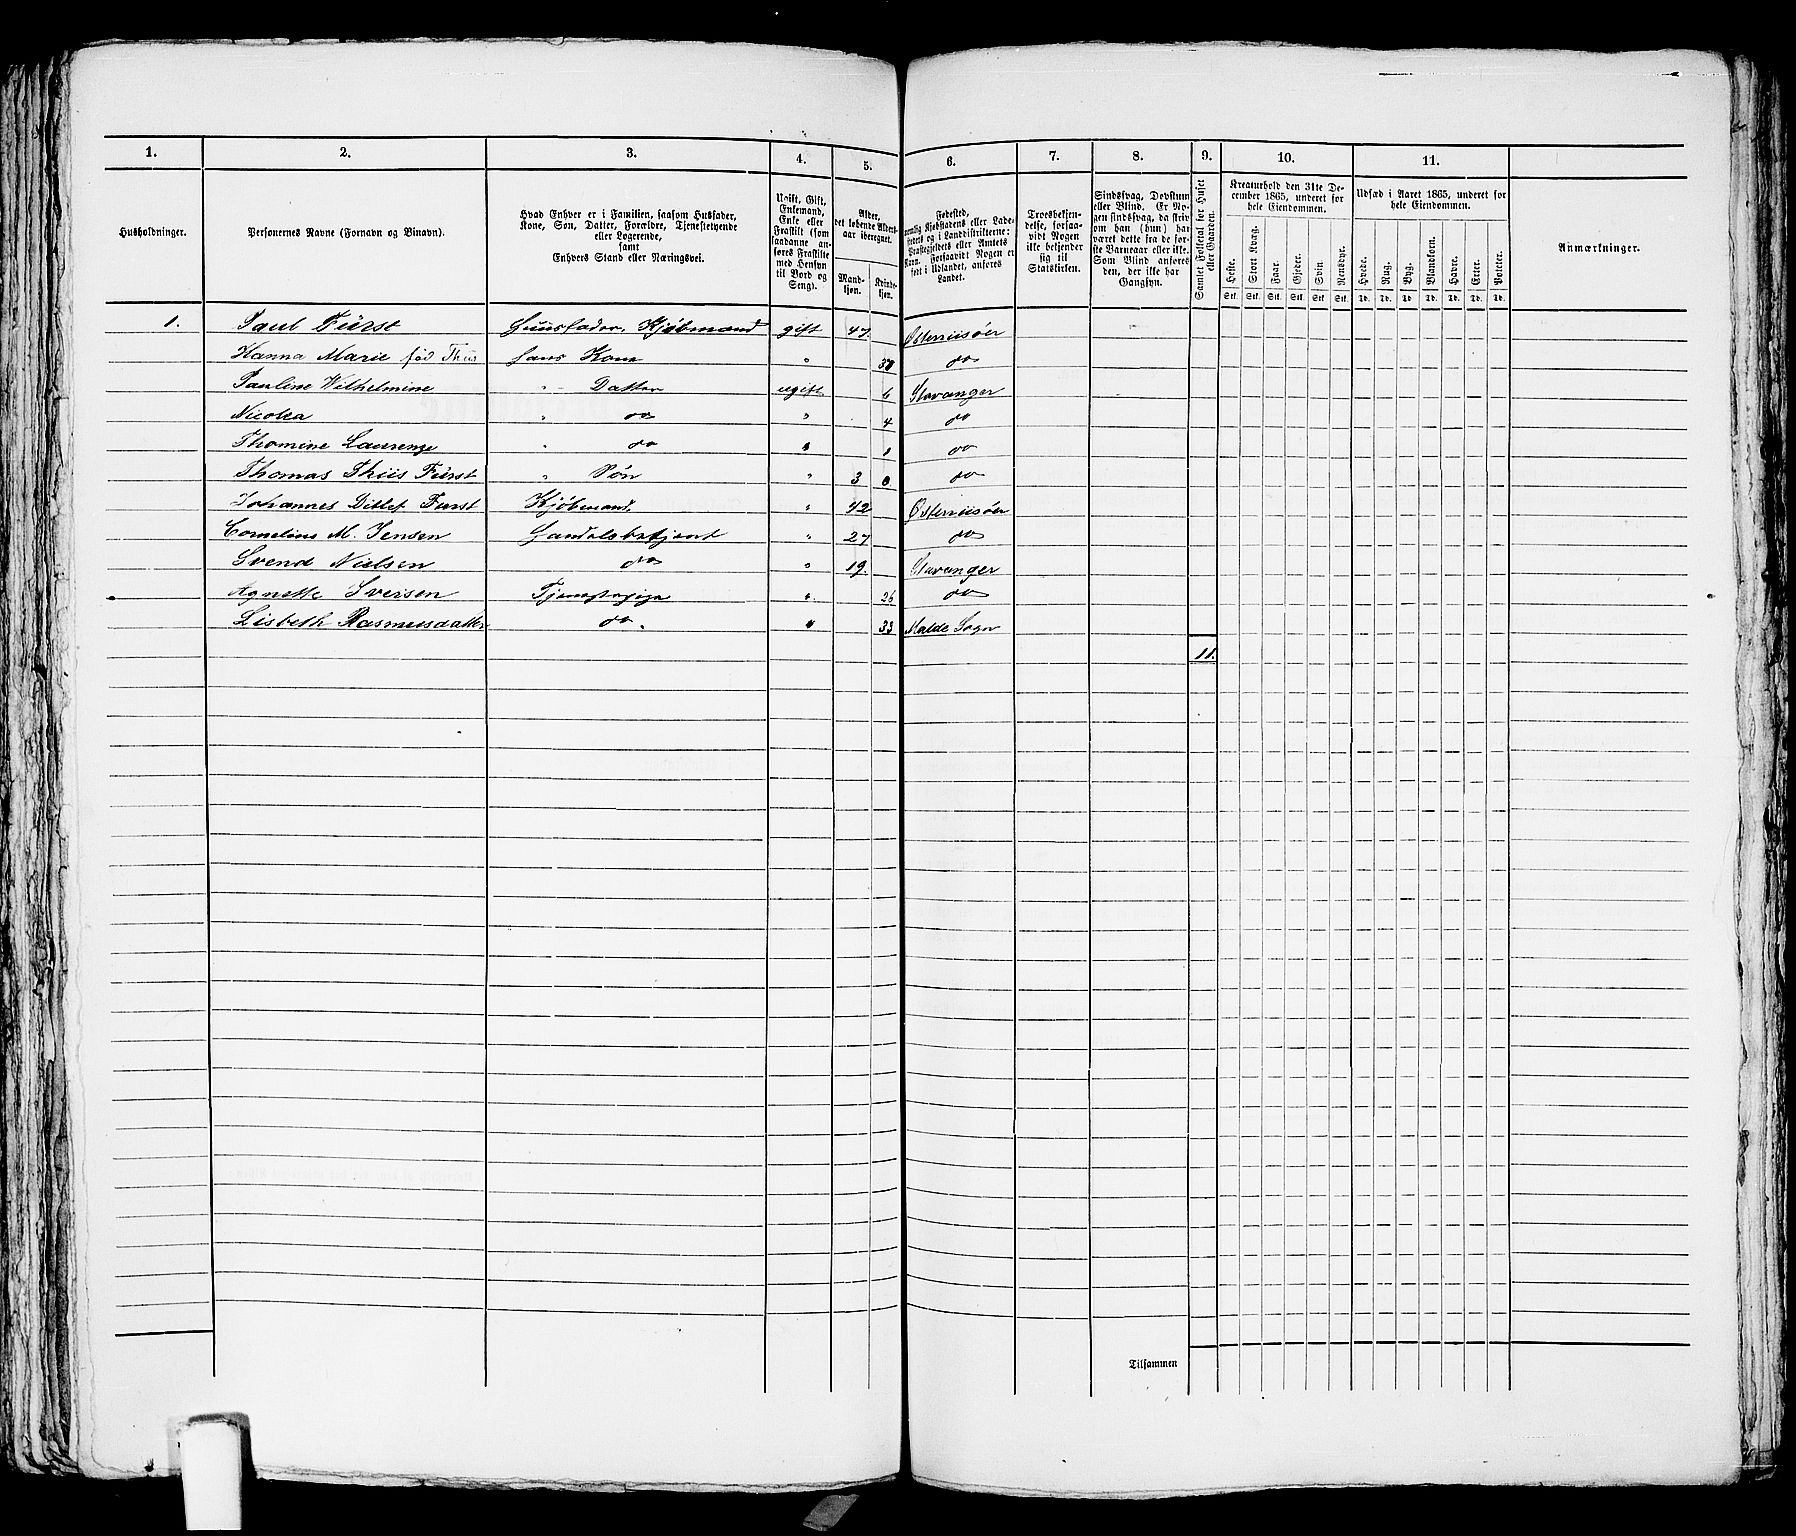 1. 2. 3. 4. 5. 6. 7. 8. 9. 10. 11.
Husholdninger.
Personernes Navne (Fornavn og Binavn).
Hvad Enhver er i Familien, saasom Husfader,
Kone, Søn, Datter, Forældre, Tjenestetyende
eller Logerende,
samt
Enhvers Stand eller Næringsvei.
Ugift, Gift,
Enkemand,
Enke eller
Fraskilt (som
saadanne an-
føres Fraskilte
med Hensyn
til Bord og
Seng).
Alder,
det løbende Alders-
aar iberegnet.
Mand-
kjøn.
Kvinde-
kjøn.
Fødested,
nemlig Kjøbstadens eller Lade-
stedets og i Landdistrikterne:
Præstegjeldets eller Amtets
Navn. Forsaavidt Nogen er
født i Udlandet, anføres
Landet.
Troesbekjen-
delse, forsaa-
vidt Nogen
ikke bekjender
sig til
Statskirken.
Sindssvag, Døvstum
eller Blind. Er No-
gen sindssvag, da skriv
om han (hun) har
været dette fra de før-
ste Barneaar eller ikke.
Som Blind anføres
den, der ikke har
Gangsyn.
Samlet Folketal for Huset
eller Gaarden.
Kreaturhold den 31te De-
cember 1865, underet for
hele Eiendommen.
Heste. Stort Kvæg. Faar. Gjeder. Svin. Rensdyr.
Stk. Stk. Stk. Stk. Stk. Stk.
Udsæd i Aaret 1865, underet for
hele Eiendommen.
Hvede. Rug. Byg. Blandkorn. Havre. Erter. Poteter.
Td. Td. Td. Td. Td. Td. Td.
Anmærkninger.
1. Paul Fürst Huusfader, Kjøbmand gift 47. Østerriisöer
Hanna Marie fød Thiis hans Kone " 30 do
Pauline Wilhelmine " Datter ugift 6 Stavanger
Nicolea " do " 4 do
Thomine Laurenze " do " 1 do
Thomas Thiis Fürst " Søn " 3 0 do
Johannes Ditlef Furst Kjøbmand. " 42 Østerriisöer
Cornelius M. Jensen Handelsbetjent " 27 do
Svend Nielsen do " 19. Stavanger
Agnette Iversen Tjenestepige " 26 do
Lisbeth Rasmusdatter do. " 33 Malde Sogn
11.
Tilsammen